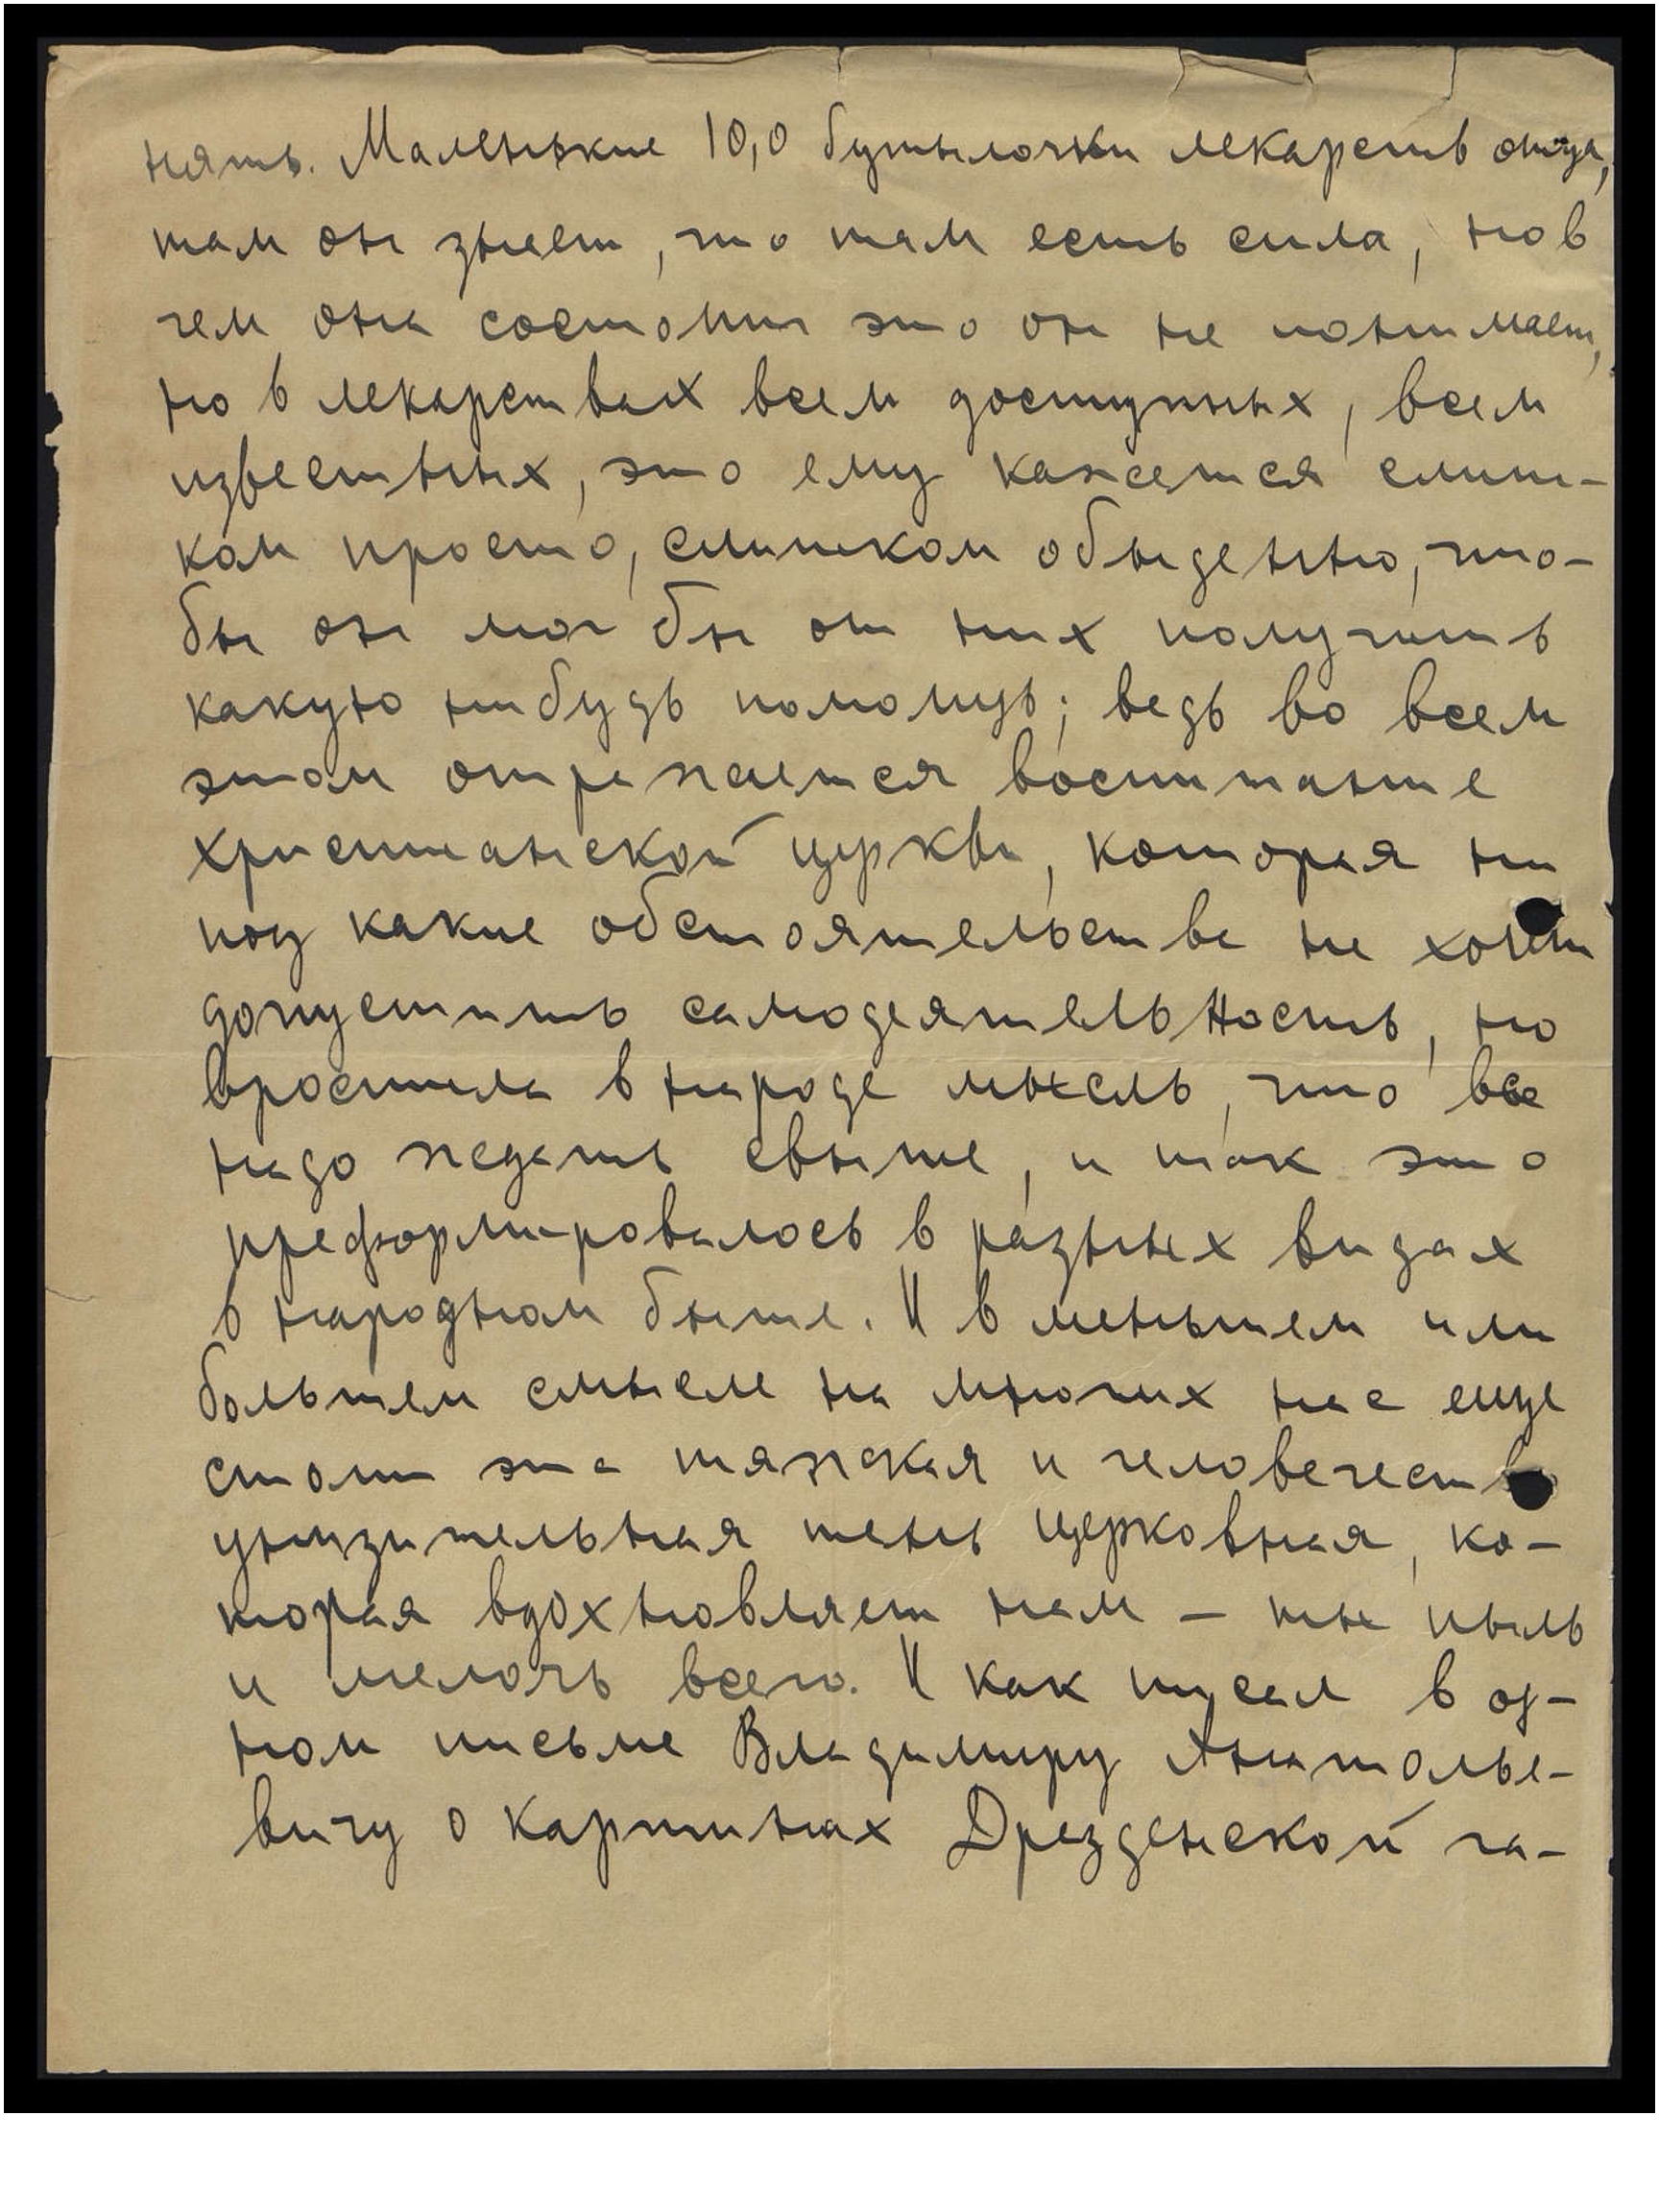 нять. Маленькие 10,0 бутылочки лекарств отца,
там он знает, что там есть сила, но в
чем она состоит это он не понимает,
но в лекарствах всем доступных, всем
известных, это ему кажется слиш-
ком просто, слишком обыденно, что-
бы он мог бы от них получить
какую нибудь помощь; ведь во всем
этом отражается воспитание
христианской церкви, которая ни
под какие обстоятельства не хочет
допустить самодеятельность, но
вростила в народе мысль, что все
надо ждать свыше, и так это
преформировалось в разных видах
в народном быте. И в меньшем или
большем смысле на многих нас еще
стоит эта тяжская и человечество
унизительная тень церковная, ко-
торая вдохновляет нам – ты пыль
и мелочь всего. И как писал в од-
ном письме Владимиру Анатолье-
вичу о картинах Дрезденской га-